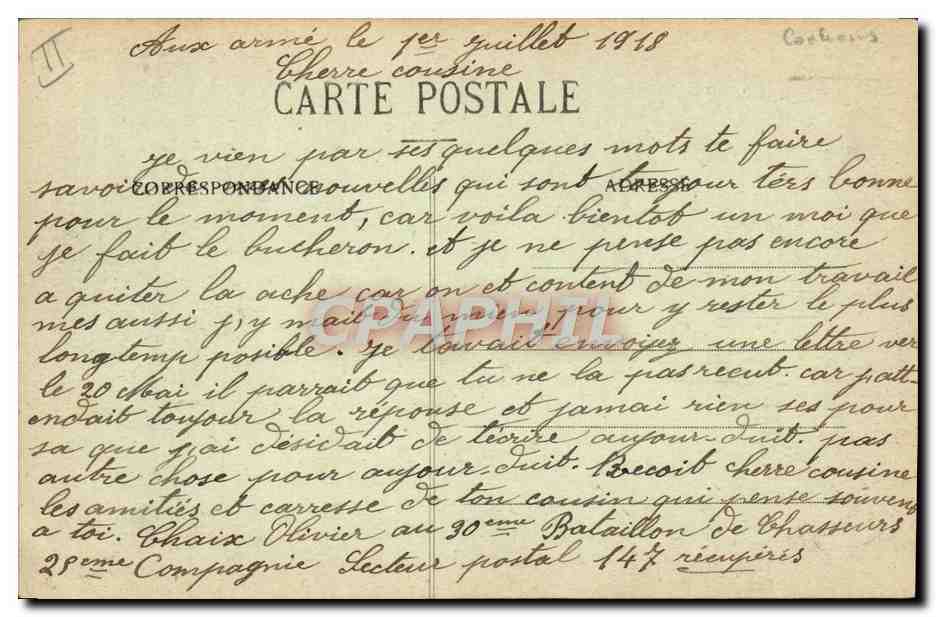 II
Aux armé le 1er Juillet 1918
Cherre cousine
CARTE POSTALE
Je vien par ses quelques mots te faire
savoir de mes nouvellis qui sont toujour térs bonne
CORRESPONDANCE
ADRESSE
pour le moment, car voila bientot un moi que
je fait le bucheron. et je ne pense pas encore
a quiter la ache car on et content de mon travail
mes aussi j,y mait du mien, pour y rester le plus
longtemp posible. Je tavait envoyer une lettre ver
le 20 Mai il parrait que tu ne la pas recut. car jatt-
endait toujour la réponse et jamai rien ses pour
sa que j,ai désidait de técrire aujour-duit. pas
autre chose pour aujour-duit. Recoit cherre cousine
les amitiés et carresse de ton cousin qui pense souvent
a toi. Chaix Olivier au 30eme Bataillon de Chasseurs
25eme Compagnie Secteur postal 147 récupérés
CPAPHIL